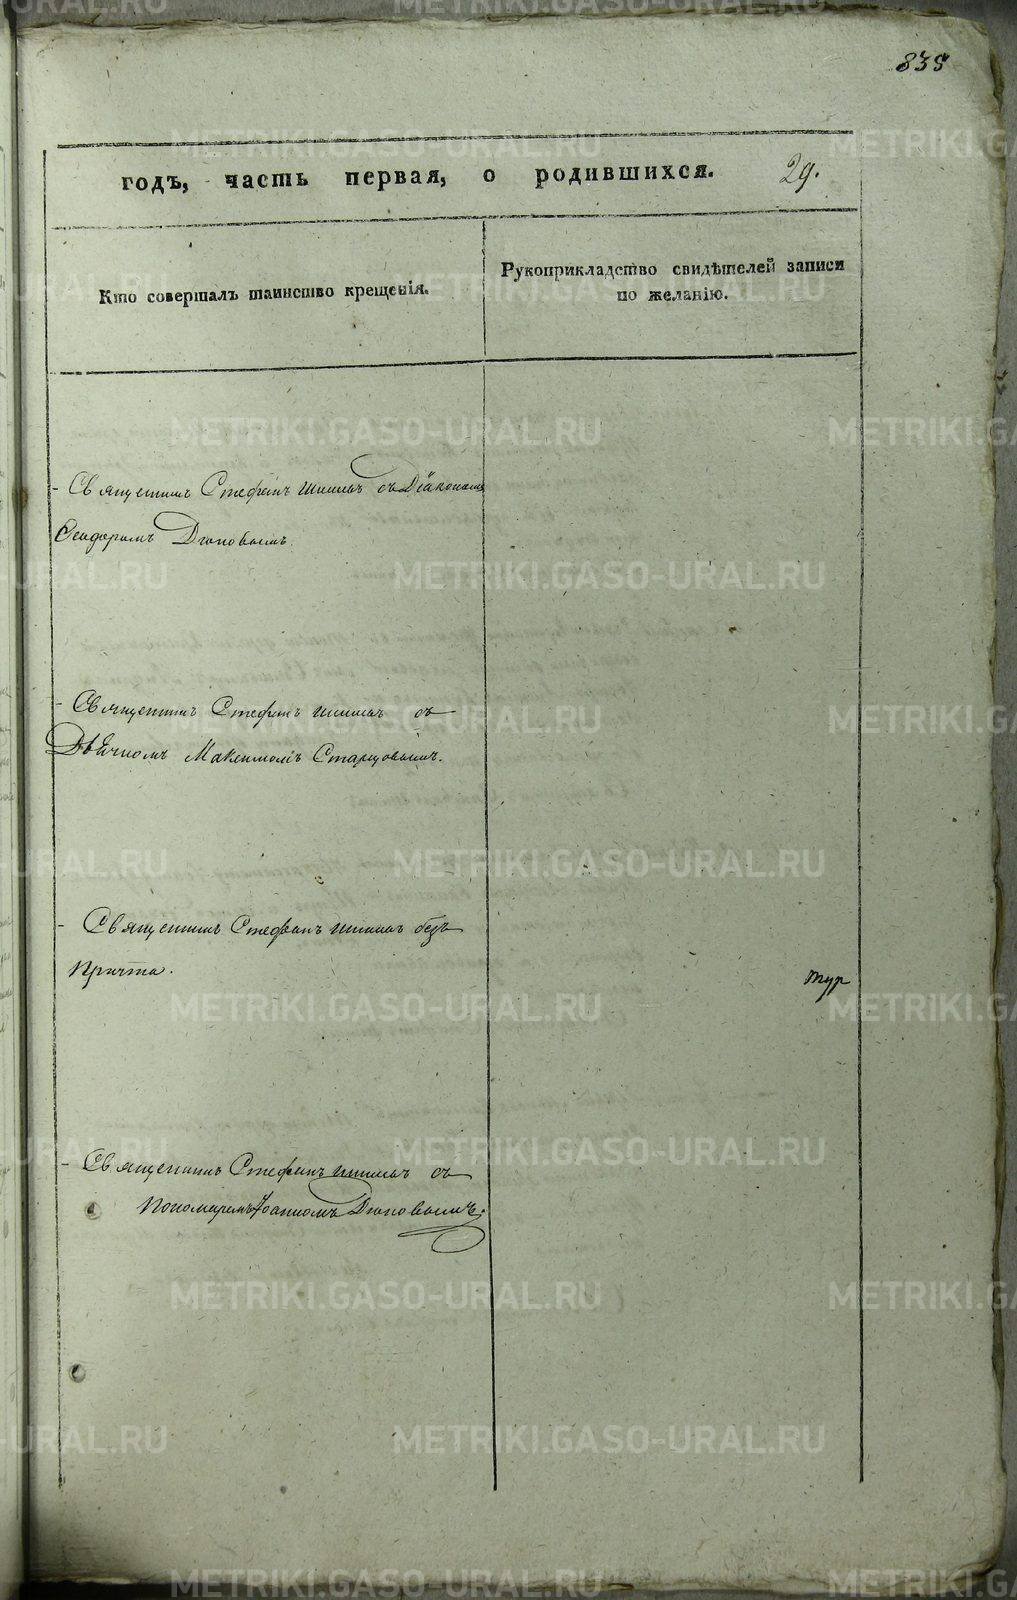 835
годъ, часть первая, о родившихся. 29.
Кто совершалъ таинство крещенія.
Рукоприкладство свидѣтелей записи
по желанію.
Священникъ Стефанъ съ Діакономъ
Ѳеодоромъ
Священникъ Стефанъ съ
Дьячкомъ Максимомъ Старцовымъ.
Священникъ Стефанъ безъ
причта.
Священникъ Стефанъ съ
Пономаремъ Іоанномъ
METRIKI.GASO-URAL.RU